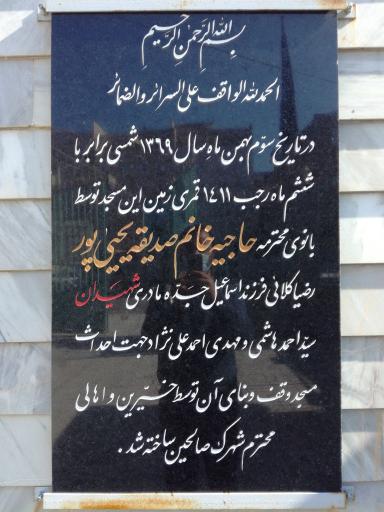 بسم الله الرحمن الرحیم
الحمد لله الواقف علی السرائر والضمائر
در تاریخ سوّم بهمن ماه سال ۱۳۶۹ شمسی برابر با
ششم ماه رجب ۱۴۱۱ قمری زمین این مسجد توسط
بانوی محترمه حاجیه خانم صدیقه یحیی پور
رضیاکلائی فرزند اسماعیل جدّه مادری شهیدان
سیّد احمد هاشمی و مهدی احمد علی نژاد جهت احداث
مسجد وقف و بنای آن توسط خیّرین و اهالی
محترم شهرک صالحین ساخته شد .